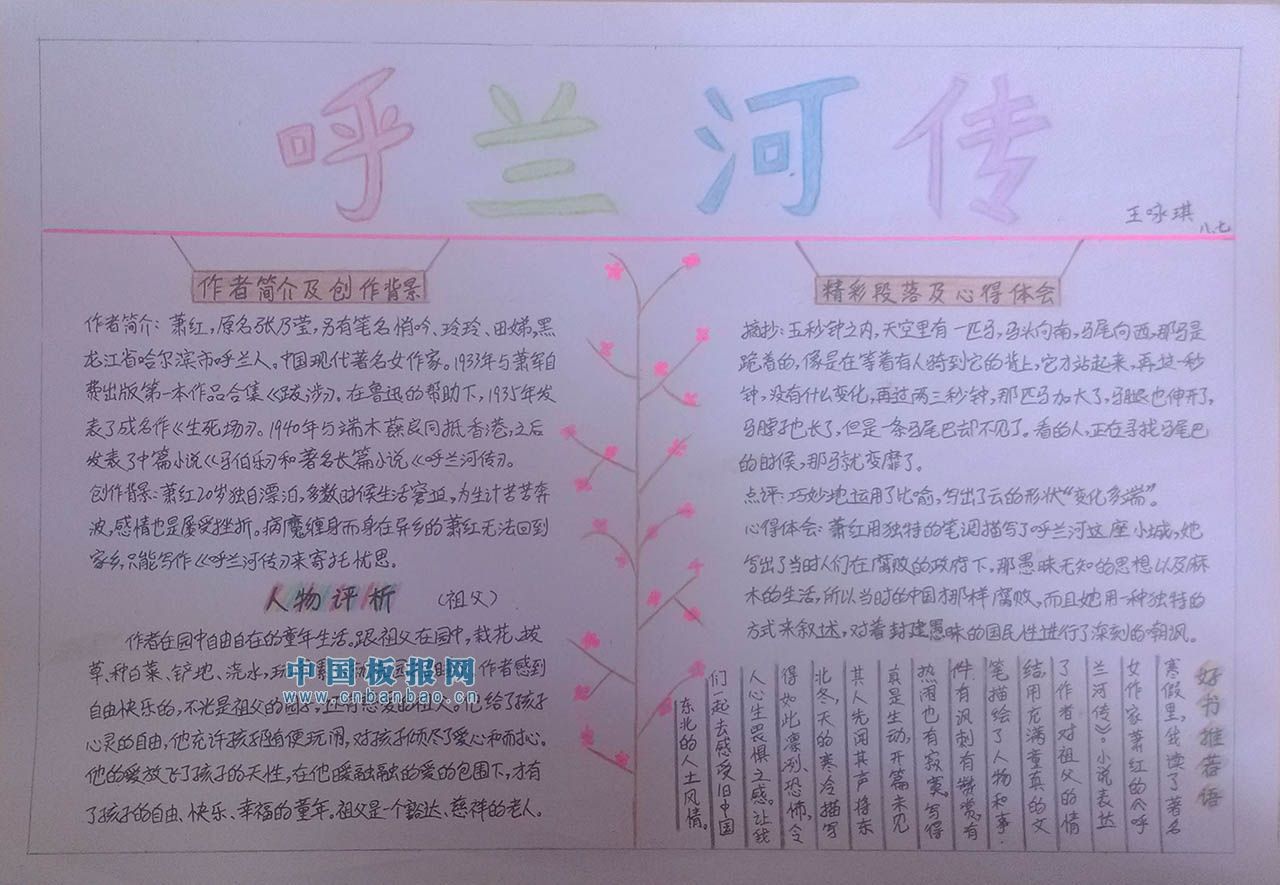 呼兰河传
王咏琪
八.七
作者简介及创作背景
作者简介：萧红，原名张乃莹，另有笔名悄吟、玲玲、田娣，黑
龙江省哈尔滨市呼兰人。中国现代著名女作家。1933年与萧军自
费出版第一本作品合集《跋涉》，在鲁迅的帮助下，1935年发
表了成名作《生死场》。1940年与端木蕻良同抵香港，之后
发表了中篇小说《马伯乐》和著名长篇小说《呼兰河传》。
创作背景：萧红20岁独自漂泊，多数时候生活窘迫，为生计苦苦奔
波，感情也是屡受挫折。病魔缠身而身在异乡的萧红无法回到
家乡，只能写作《呼兰河传》来寄托忧思。
人物评析 （祖父）
作者在园中自由自在的童年生活。跟祖父在园中，栽花、拔
草、种白菜、铲地、浇水，玩 作者感到
自由快乐的，不光是祖父的园子，还有慈爱的祖父。他给了孩子
心灵的自由，他允许孩子随便玩闹，对孩子倾尽了爱心和耐心。
他的爱放飞了孩子的天性，在他暖融融的爱的包围下，才有
了孩子的自由、快乐、幸福的童年。祖父是一个豁达、慈祥的老人。
中国板报网
www.cnbanbao.cn
精彩段落及心得体会
摘抄：五秒钟之内，天空里有一匹马，马头向南，马尾向西，那马是
跪着的，像是在等着有人骑到它的背上，它才站起来，再过一秒
钟，没有什么变化，再过两三秒钟，那匹马加大了，马腿也伸开了，
马脖子也长了，但是一条马尾巴却不见了。看的人，正在寻找马尾巴
的时候，那马就变靡了。
点评：巧妙地运用了比喻，写出了云的形状“变化多端”。
心得体会：萧红用独特的笔调描写了呼兰河这座小城，她
写出了当时人们在腐败的政府下，那愚昧无知的思想以及麻
木的生活，所以当时的中国才那样腐败，而且她用一种独特的
方式来叙述，对着封建愚昧的国民性进行了深刻的嘲讽。
好书推荐语
寒假里，我读了著名
女作家萧红的《呼
兰河传》。小说表达
了作者对祖父的情
结，用充满童真的文
笔描绘了人物和事
件，有讽刺有赞赏，有
热闹也有寂寞。写得
真是生动，开篇未见
其人先闻其声将东
北冬，天的寒冷描写
得如此凛冽、恐怖，令
人心生畏惧之感。让我
们一起去感受旧中国
东北的人土风情。